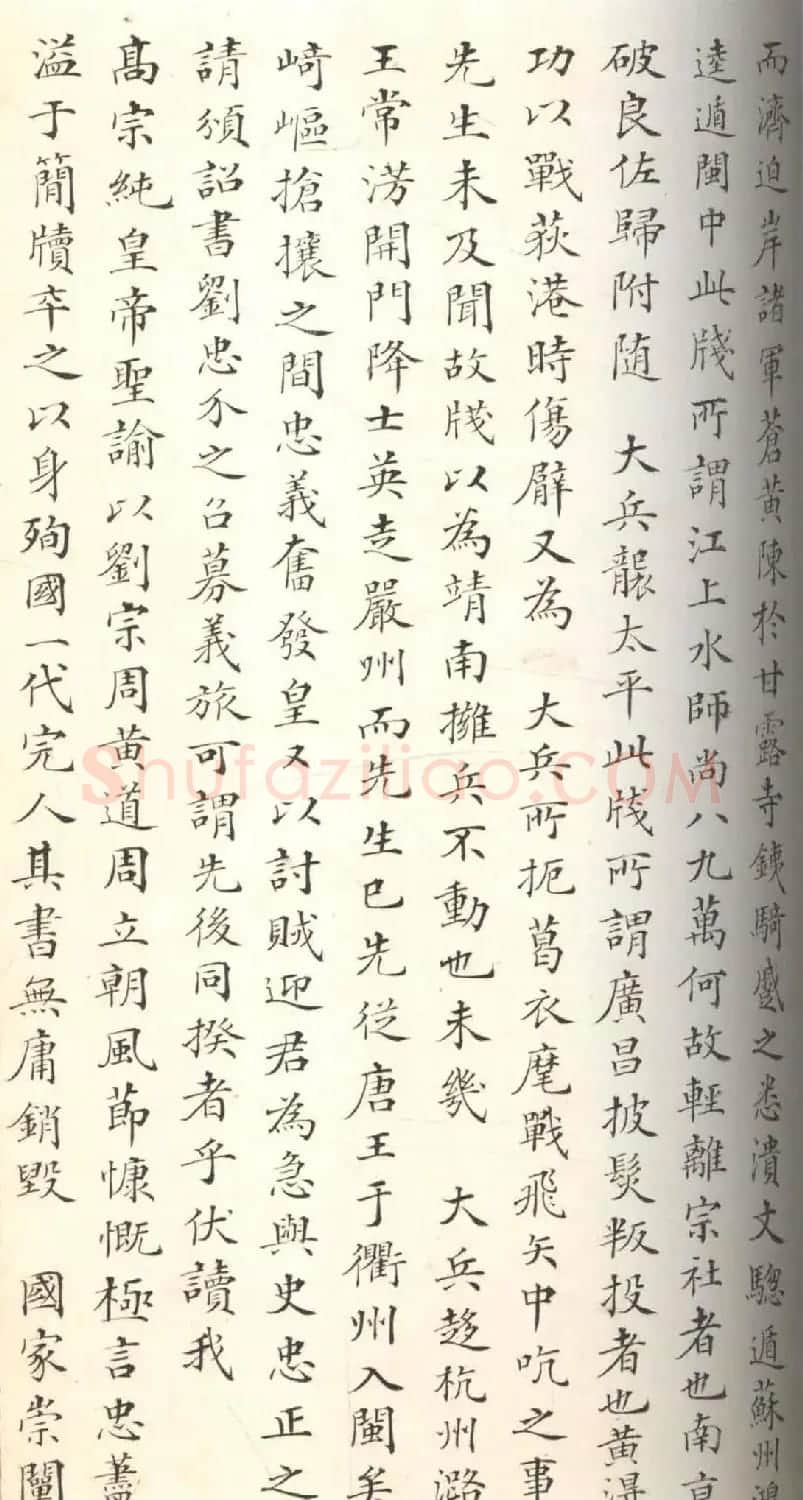 而濟迫岸諸軍蒼黃陳於甘露寺鐵騎蹙之悉潰文驄遁蘇州鴻
逵遁閩中此牋所謂江上水師尚八九萬何故輕離宗社者也南京
破良佐歸附随 大兵襲太平此牋所謂廣昌披髮叛投者也黃得
功以戰荻港時傷臂又為 大兵所扼葛衣麾戰飛矢中吭之事
先生未及聞故牋以為靖南擁兵不動也未幾 大兵趍杭州潞
王常淓開門降士英走嚴州而先生已先從唐王于衢州入閩矣
崎嶇搶攘之間忠義奮發皇又以討賊迎君為急與史忠正之
請頒詔書劉忠介之召募義旅可謂先後同揆者乎伏讀我
高宗純皇帝聖諭以劉宗周黃道周立朝風節慷慨極言忠藎
溢于簡牘卒之以身殉國一代完人其書無庸銷毀 國家崇闡
Shufaziliao.COM